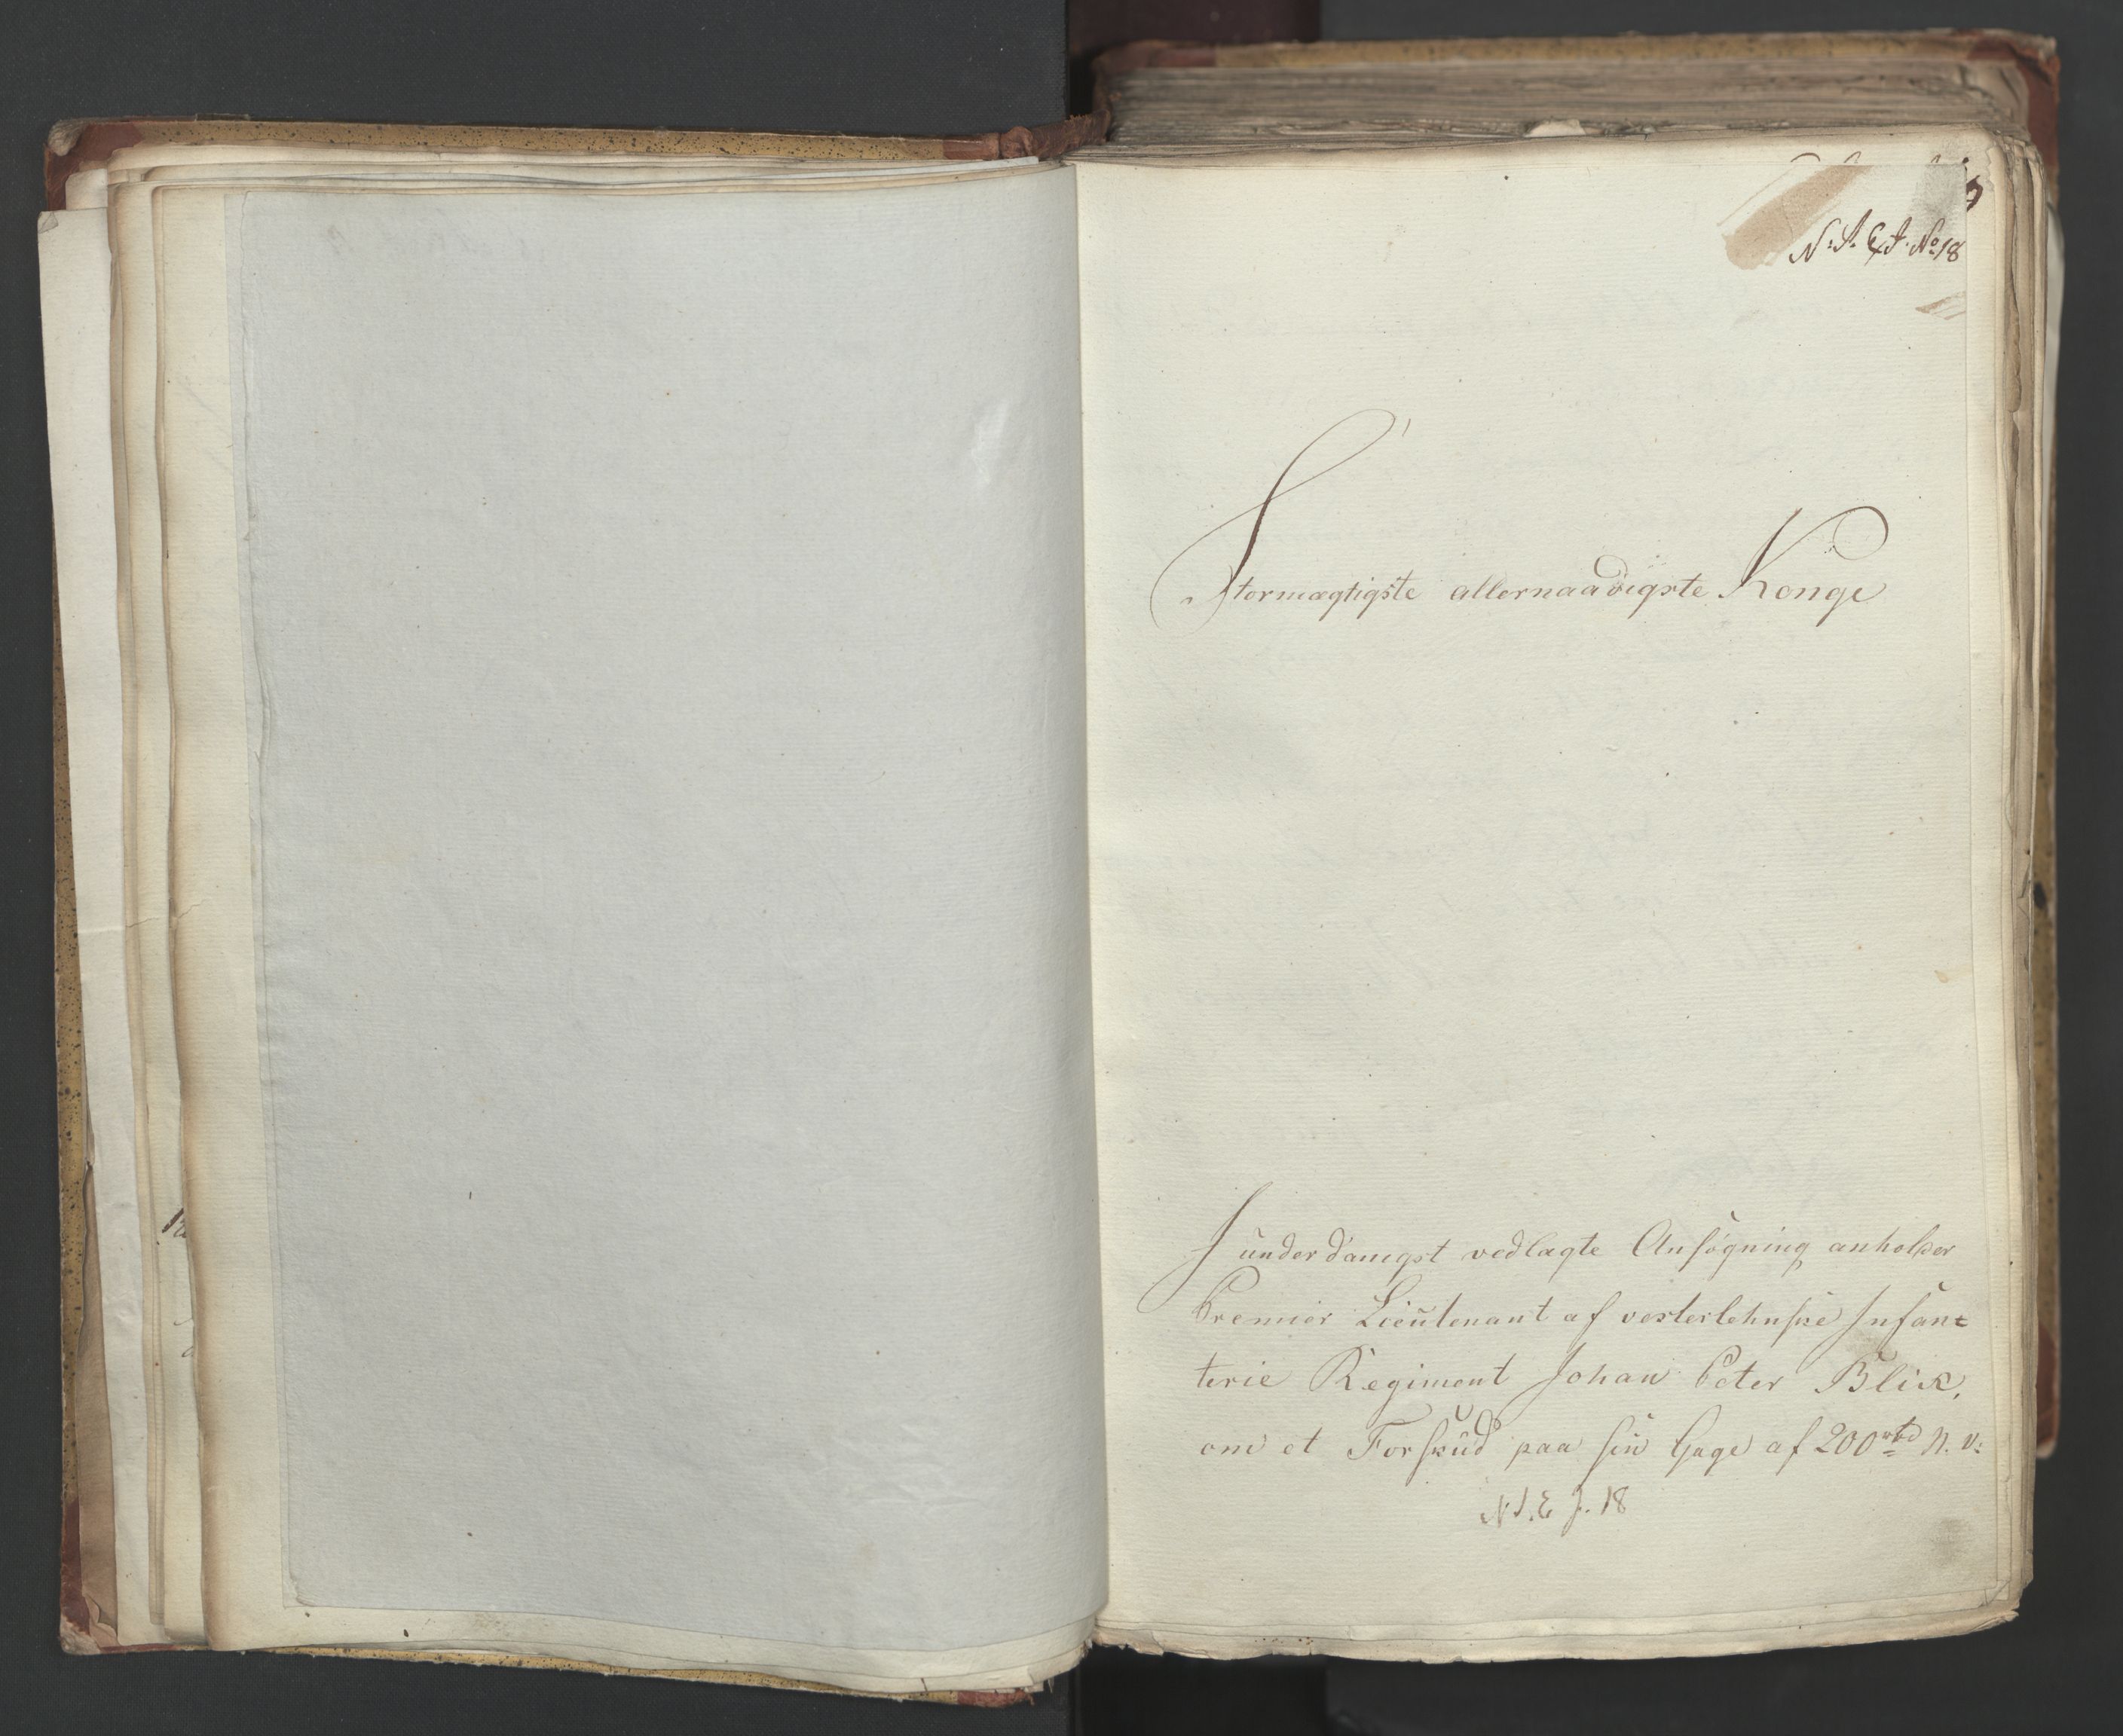 N: S. E J. No 18
Stormægtigste allernaadigste Konge
I underdanigst vedlagte Ansøgning anholder
Premier Lieutenant af vesterlehnske Infan=
terie Regiment Johan Peter Blix,
om et Forskud paa sin Gage af 200 rbd N. V:
N S. E J. 18